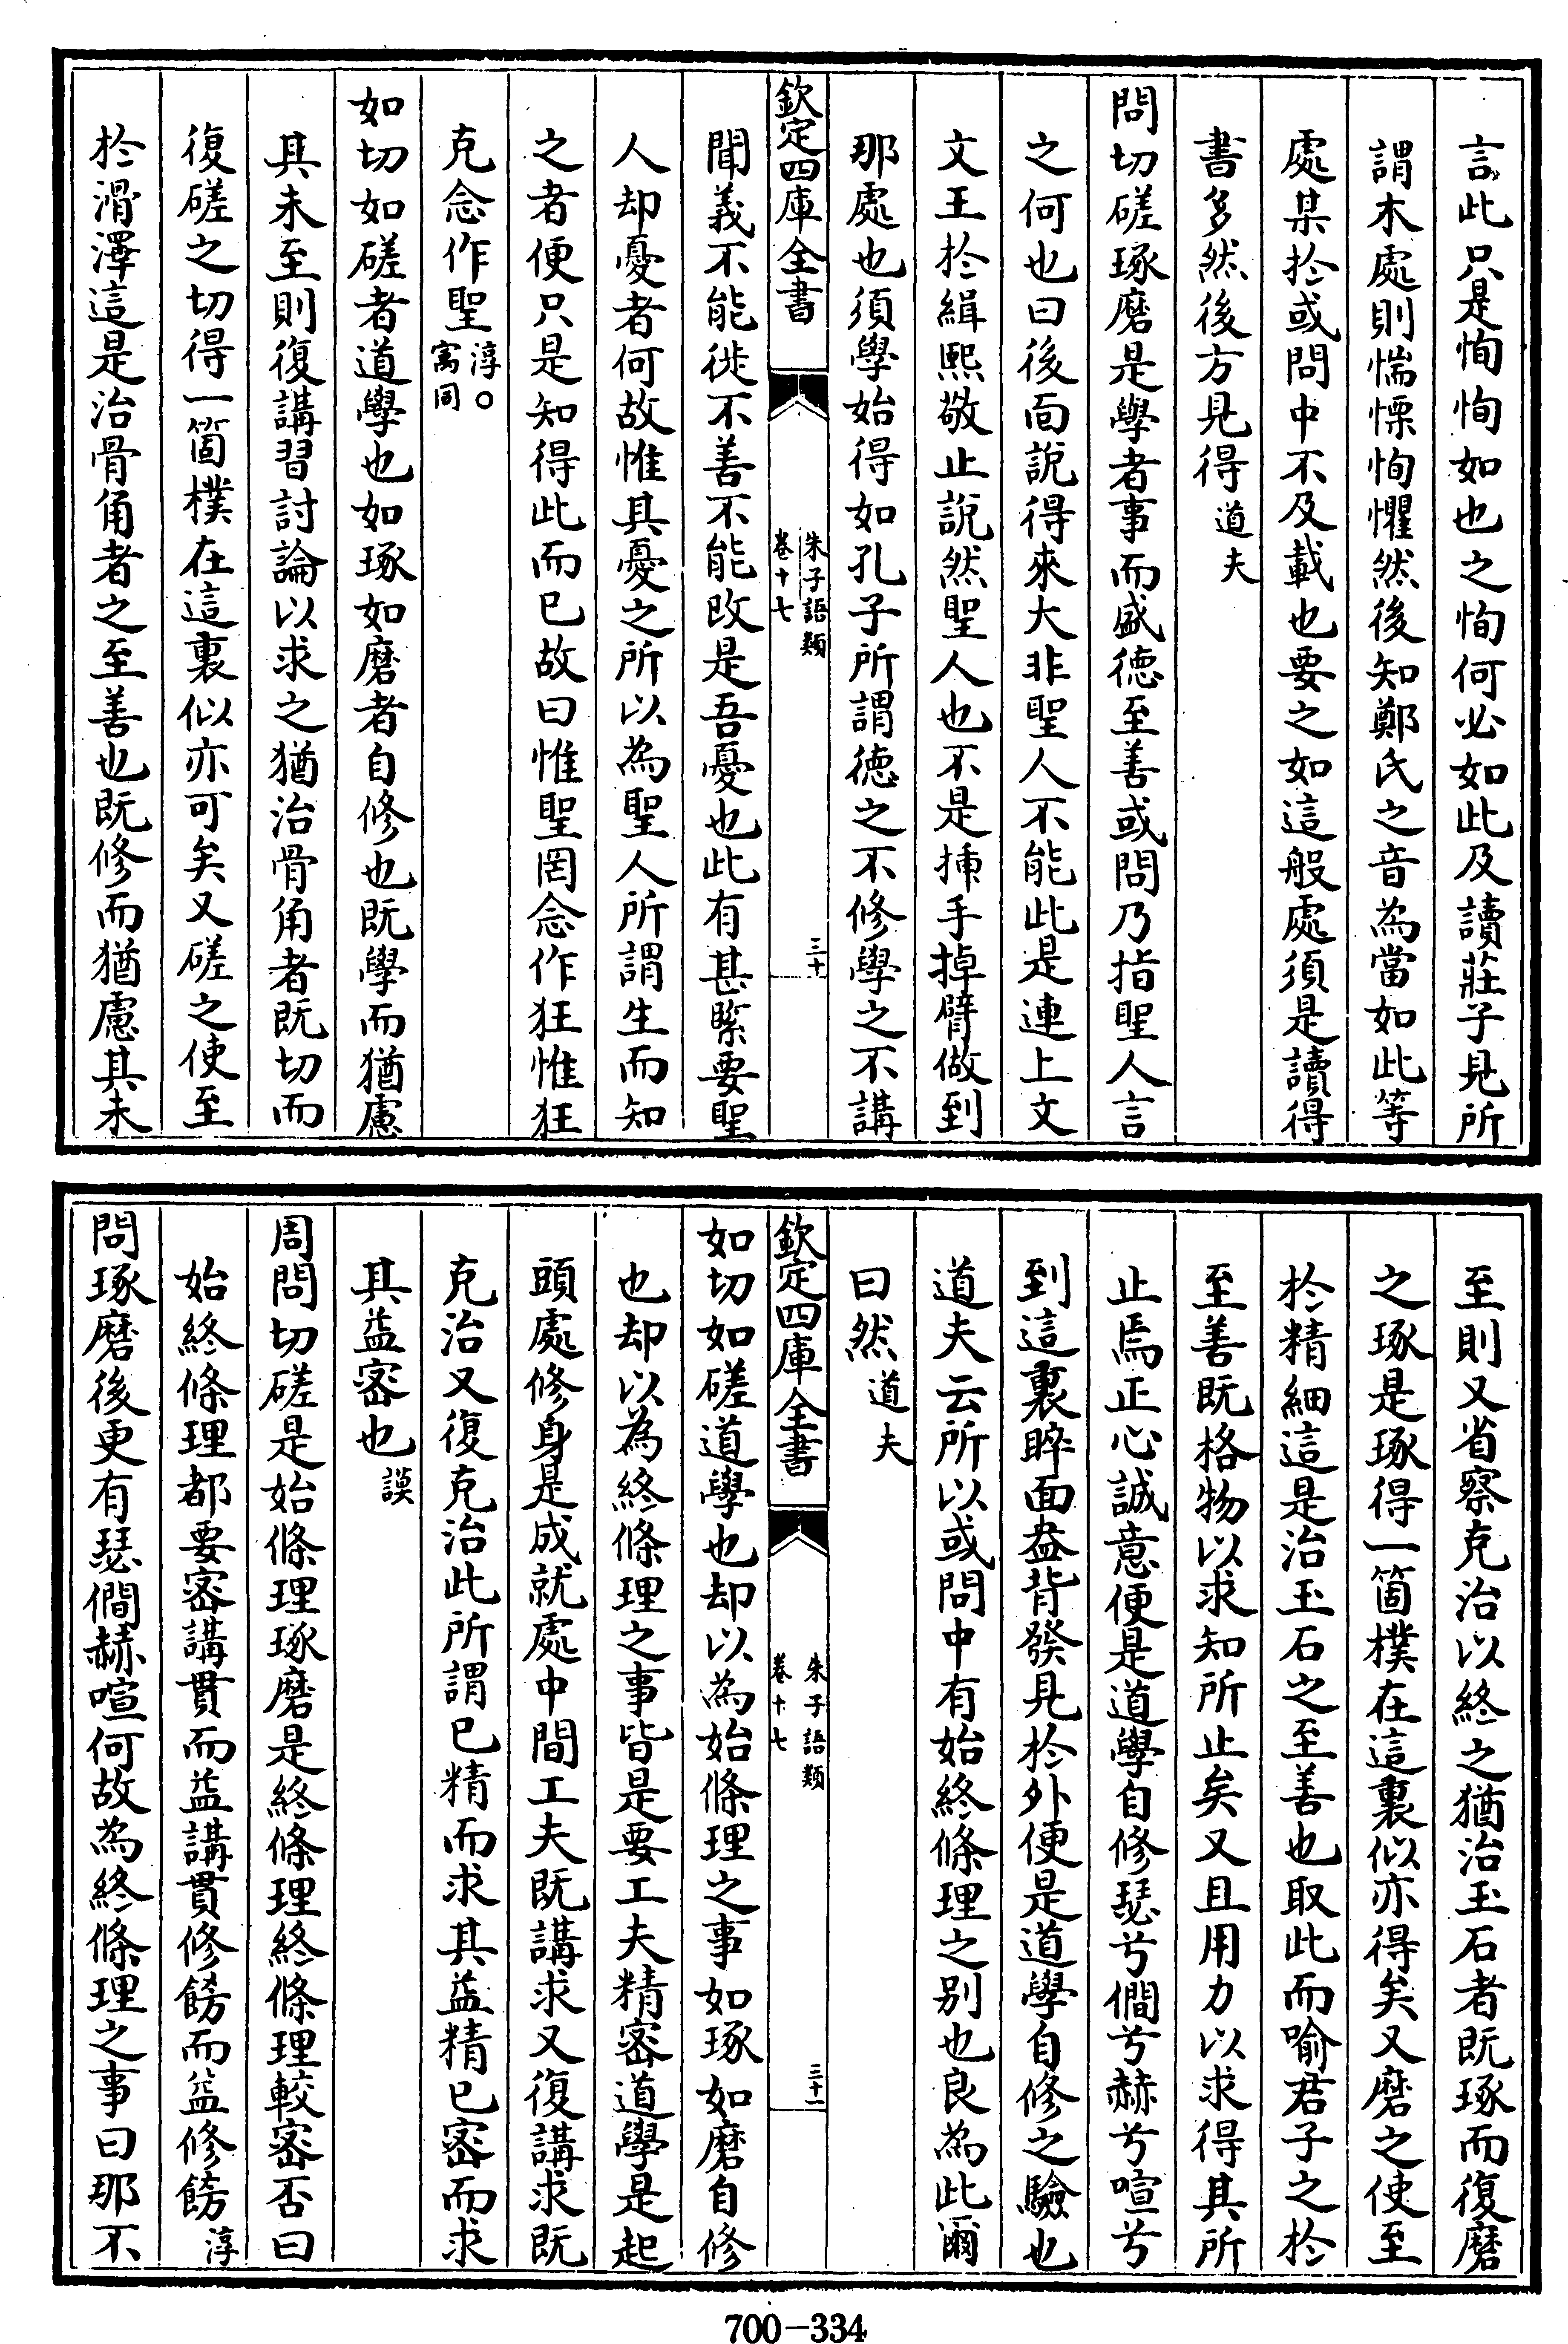 言此只是恂恂如也之恂何必如此及讀莊子見所
謂木處則惴慄恂懼然後知鄭氏之音為當如此等
處某於或問中不及載也要之如這般處須是讀得
書多然後方見得道夫
問切磋琢磨是學者事而盛德至善或問乃指聖人言
之何也曰後面說得來大非聖人不能此是連上文
文王於緝熙敬止說然聖人也不是揷手掉臂做到
那處也須學始得如孔子所謂德之不修學之不講
欽定四庫全書
朱子語類
卷十七
三十
聞義不能徙不善不能改是吾憂也此有甚緊要聖
人却憂者何故惟其憂之所以為聖人所謂生而知
之者便只是知得此而已故曰惟聖罔念作狂惟狂
克念作聖淳○寓同
如切如磋者道學也如琢如磨者自修也既學而猶慮
其未至則復講習討論以求之猶治骨角者既切而
復磋之切得一箇樸在這裏似亦可矣又磋之使至
於滑澤這是治骨角者之至善也既修而猶慮其未
至則又省察克治以終之猶治玉石者既琢而復磨
之琢是琢得一箇樸在這裏似亦得矣又磨之使至
於精細這是治玉石之至善也取此而喻君子之於
至善既格物以求知所止矣又且用力以求得其所
止焉正心誠意便是道學自修瑟兮僩兮赫兮喧兮
到這裏睟面盎背發見於外便是道學自修之驗也
道夫云所以或問中有始終條理之别也良為此爾
曰然道夫
欽定四庫全書
朱子語類
卷十七
三十一
如切如磋道學也却以為始條理之事如琢如磨自修
也却以為終條理之事皆是要工夫精密道學是起
頭處修身是成就處中間工夫既講求又復講求既
克治又復克治此所謂已精而求其益精已密而求
其益密也謨
周問切磋是始條理琢磨是終條理終條理較密否曰
始終條理都要密講貫而益講貫修飭而益修飭淳
問琢磨後更有瑟僩赫喧何故為終條理之事曰那不
700-334